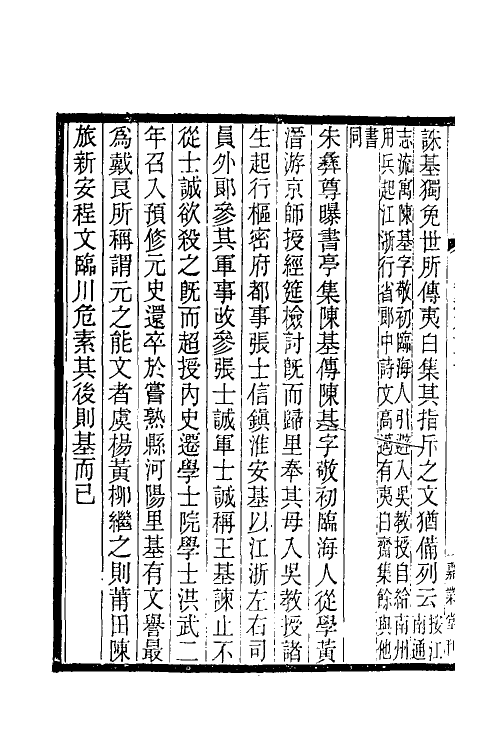 誅基獨免世所傳夷白集其指斥之文猶備列云按江南通
志流寓陳基字敬初臨海人引避入吳教授自給南州
用兵起江浙行省郎中詩文高邁有夷白齋集餘與他
書同
朱彝尊曝書亭集陳基傳陳基字敬初臨海人從學黃
溍游京師授經筵檢討旣而歸里奉其母入吳教授諸
生起行樞密府都事張士信鎮淮安基以江浙左右司
員外郎參其軍事改參張士誠軍士誠稱王基諫止不
從士誠欲殺之旣而超授內史遷學士院學士洪武二
年召入預修元史還卒於嘗熟縣河陽里基有文譽最
爲戴良所稱謂元之能文者虞楊黃柳繼之則莆田陳
旅新安程文臨川危素其後則基而已
嘉業堂刊